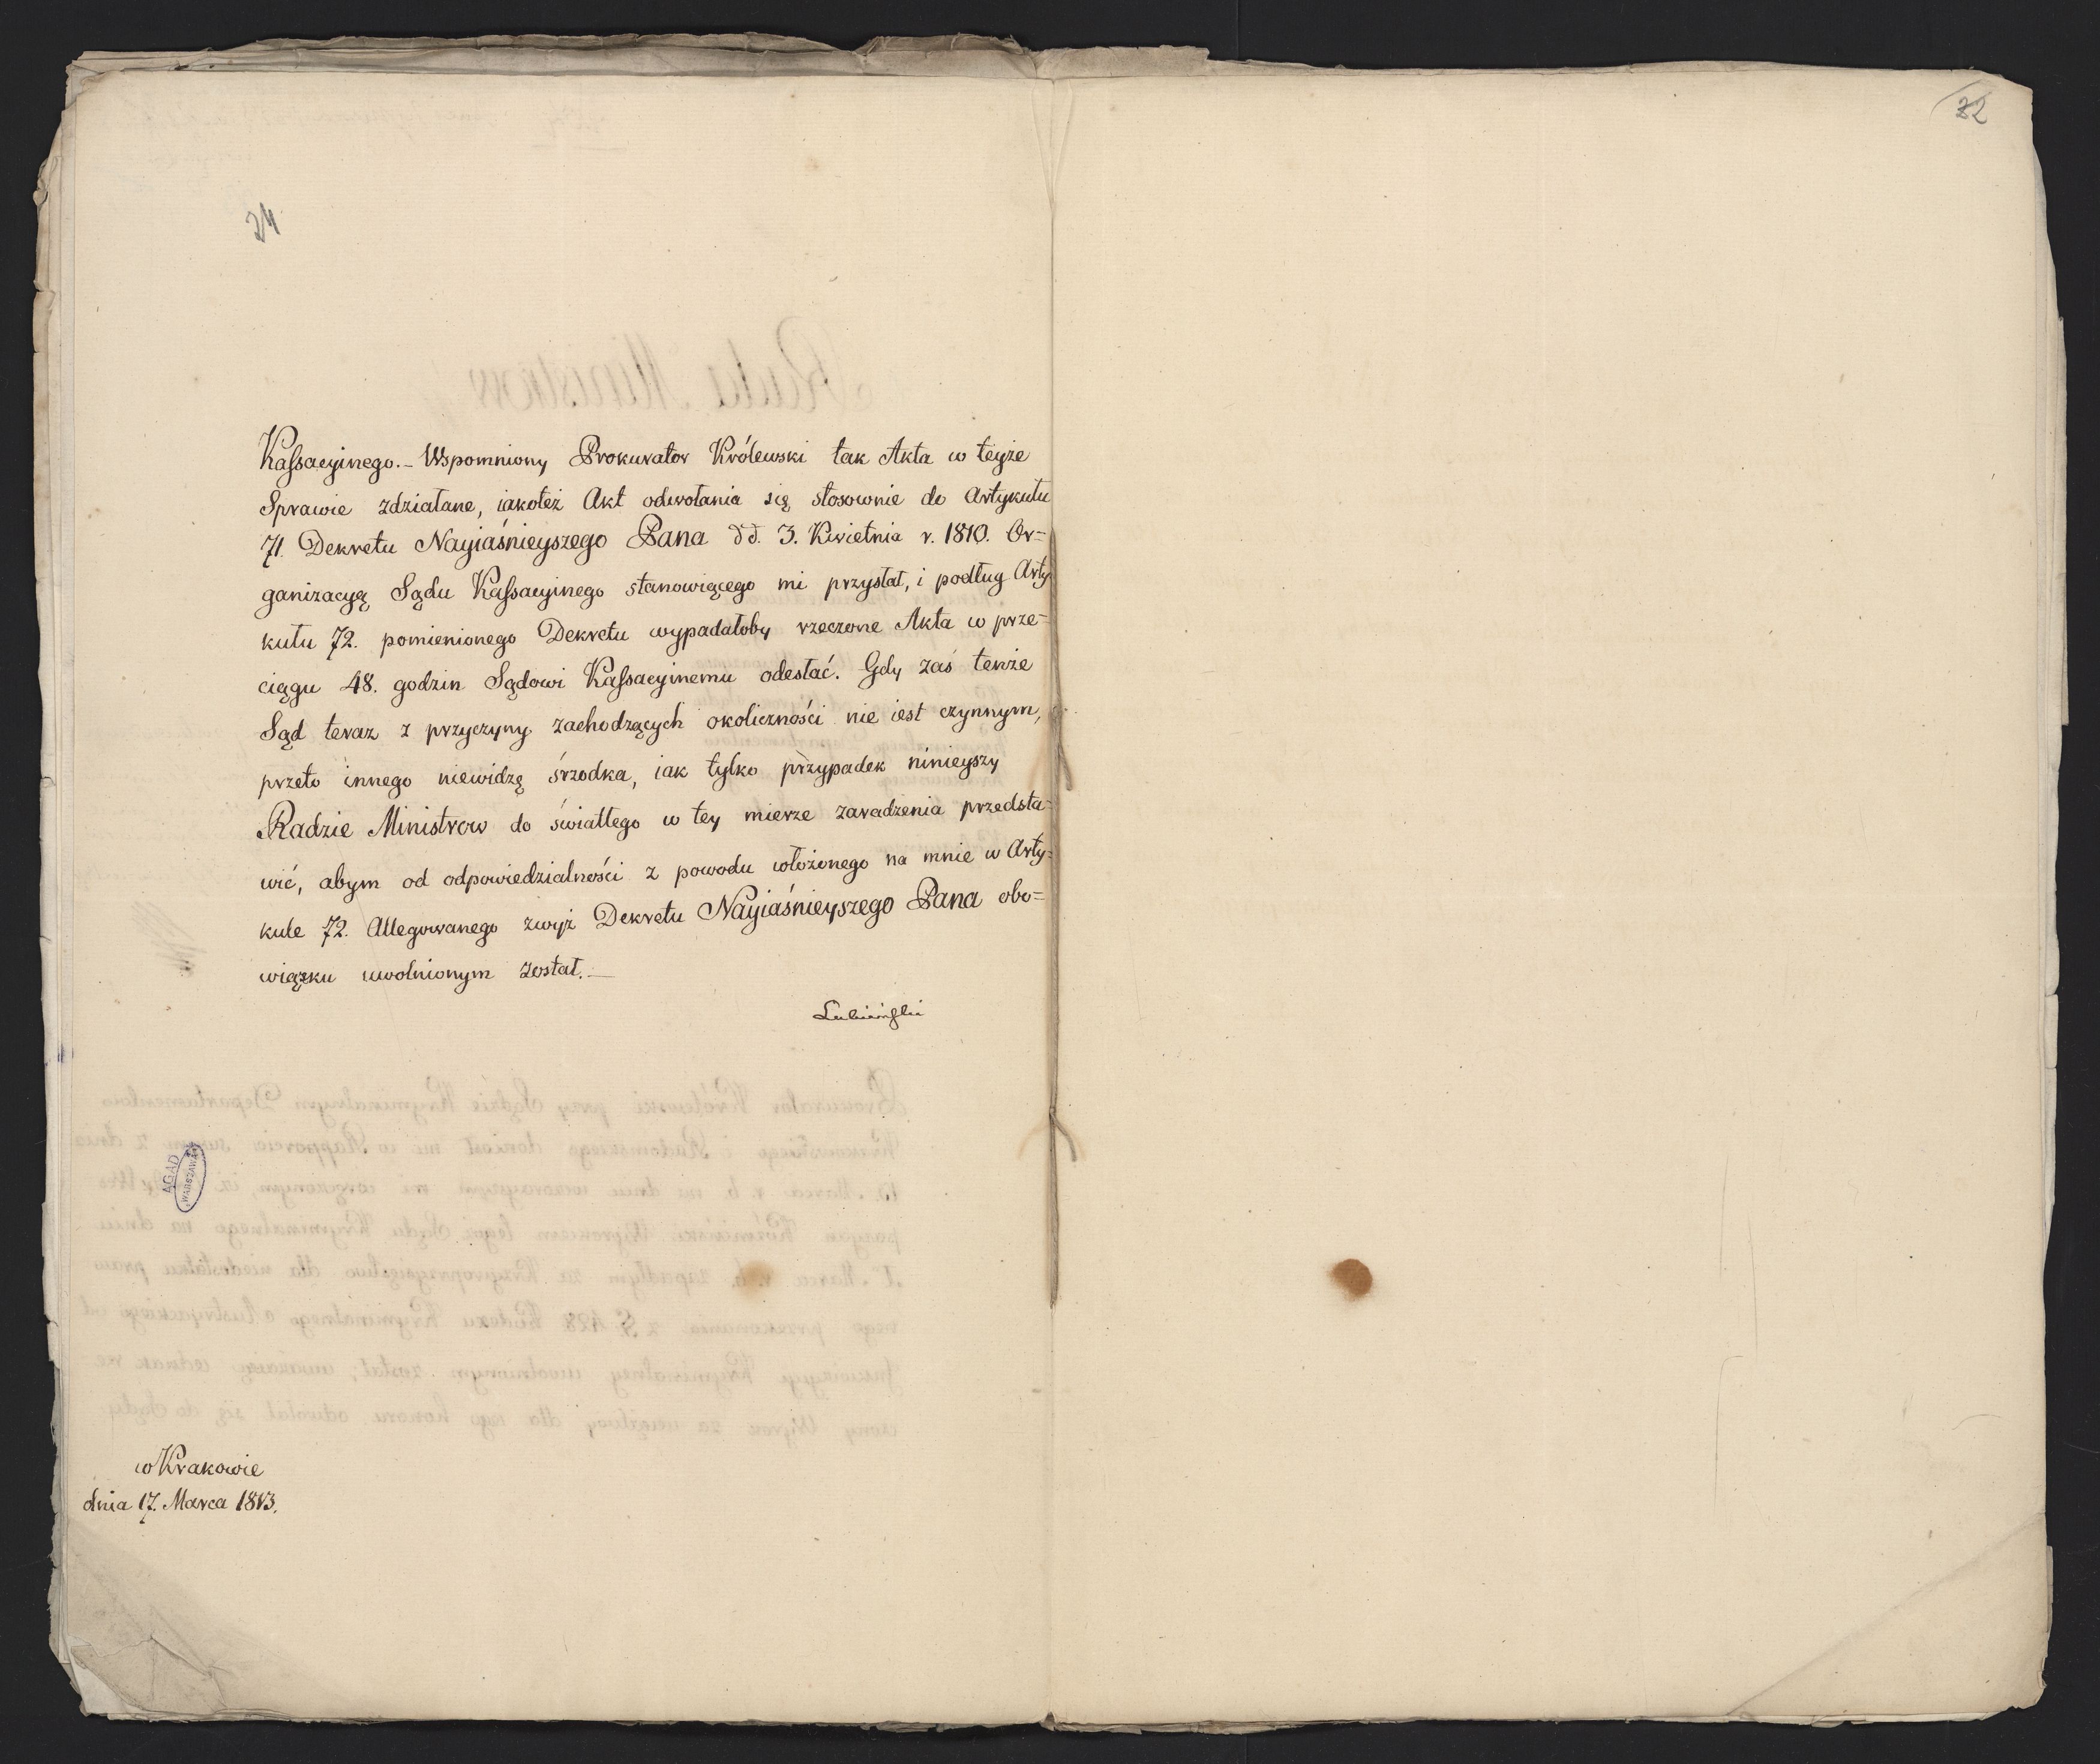 24
Kaſsacyinego. – Wspomniony Prokurator Królewski tak Akta w teyże
Sprawie zdziałane, iakoteż Akt odwołania się stosownie do Artykułu
71. Dekretu Nayiaśnieyszego Pana dd. 3. Kwietnia r. 1810. Or=
ganizacyą Sądu Kaſsacyinego stanowiącego mi przysłał, i podług Arty
kułu 72. pomienionego Dekretu wypadałoby rzeczone Akta w prze=
ciągu 48. godzin Sądowi Kaſsacyinemu odesłać. Gdy zaś tenże
Sąd teraz z przyczyny zachodzących okoliczności nie iest czynnym,
przeto innego niewidzę śrzodka, iak tylko przypadek ninieyszy
Radzie Ministrow do światłego w tey mierze zaradzenia przedsta=
wić, abym od odpowiedzialności z powodu włożonego na mnie w Arty=
kule 72. Allegowanego zwyż Dekretu Nayiaśnieyszego Pana obo=
wiązku uwolnionym został. —
Lubieńſki
AGAD
WARSZAWA
w Krakowie
dnia 17. Marca 1813.
22